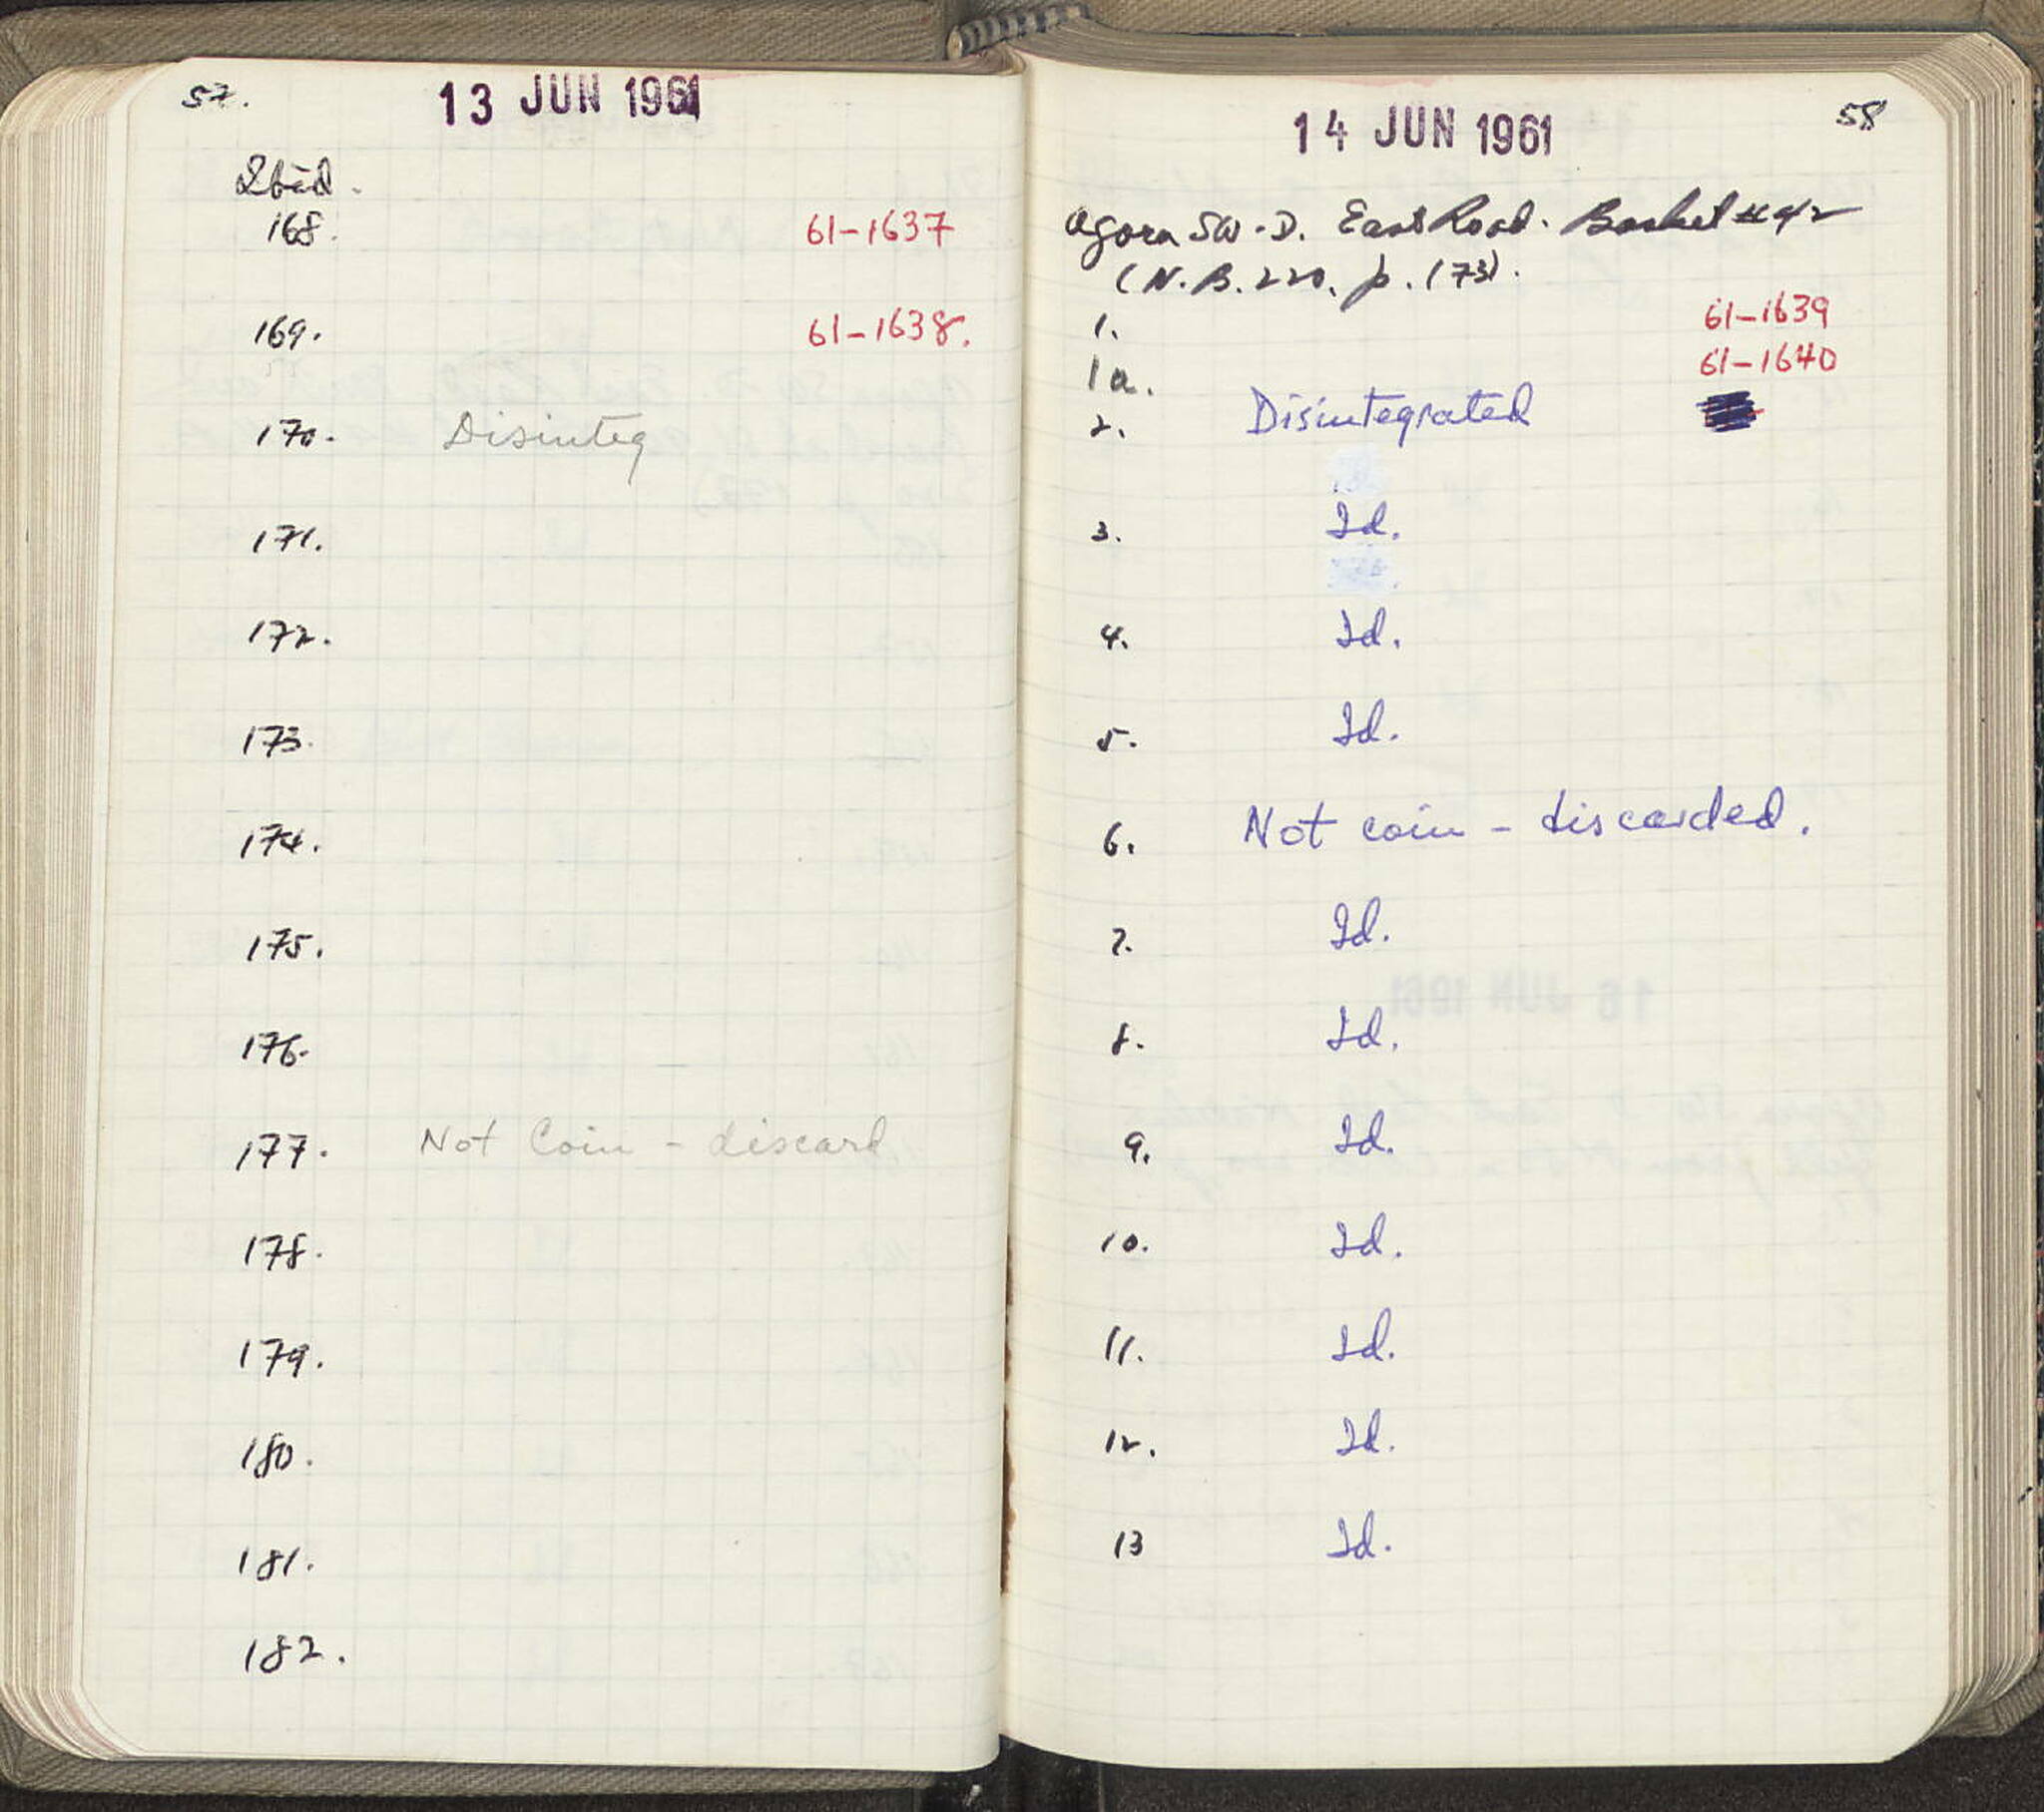 57.
13 JUN 1961
Ibid.
168. 61-1637
169. 61-1638.
170. Disinteg
171.
172.
173.
174.
175.
176.
177. Not Coin - discard
178.
179.
180.
181.
182.
58
14 JUN 1961
Agora SW-D. East Road. Basket #42
(N.B. 220, p. 173).
1. 61-1639
1a. 61-1640
2. Disintegrated
3. Id.
4. Id.
5. Id.
6. Not coin - discarded.
7. Id.
8. Id.
9. Id.
10. Id.
11. Id.
12. Id.
13 Id.